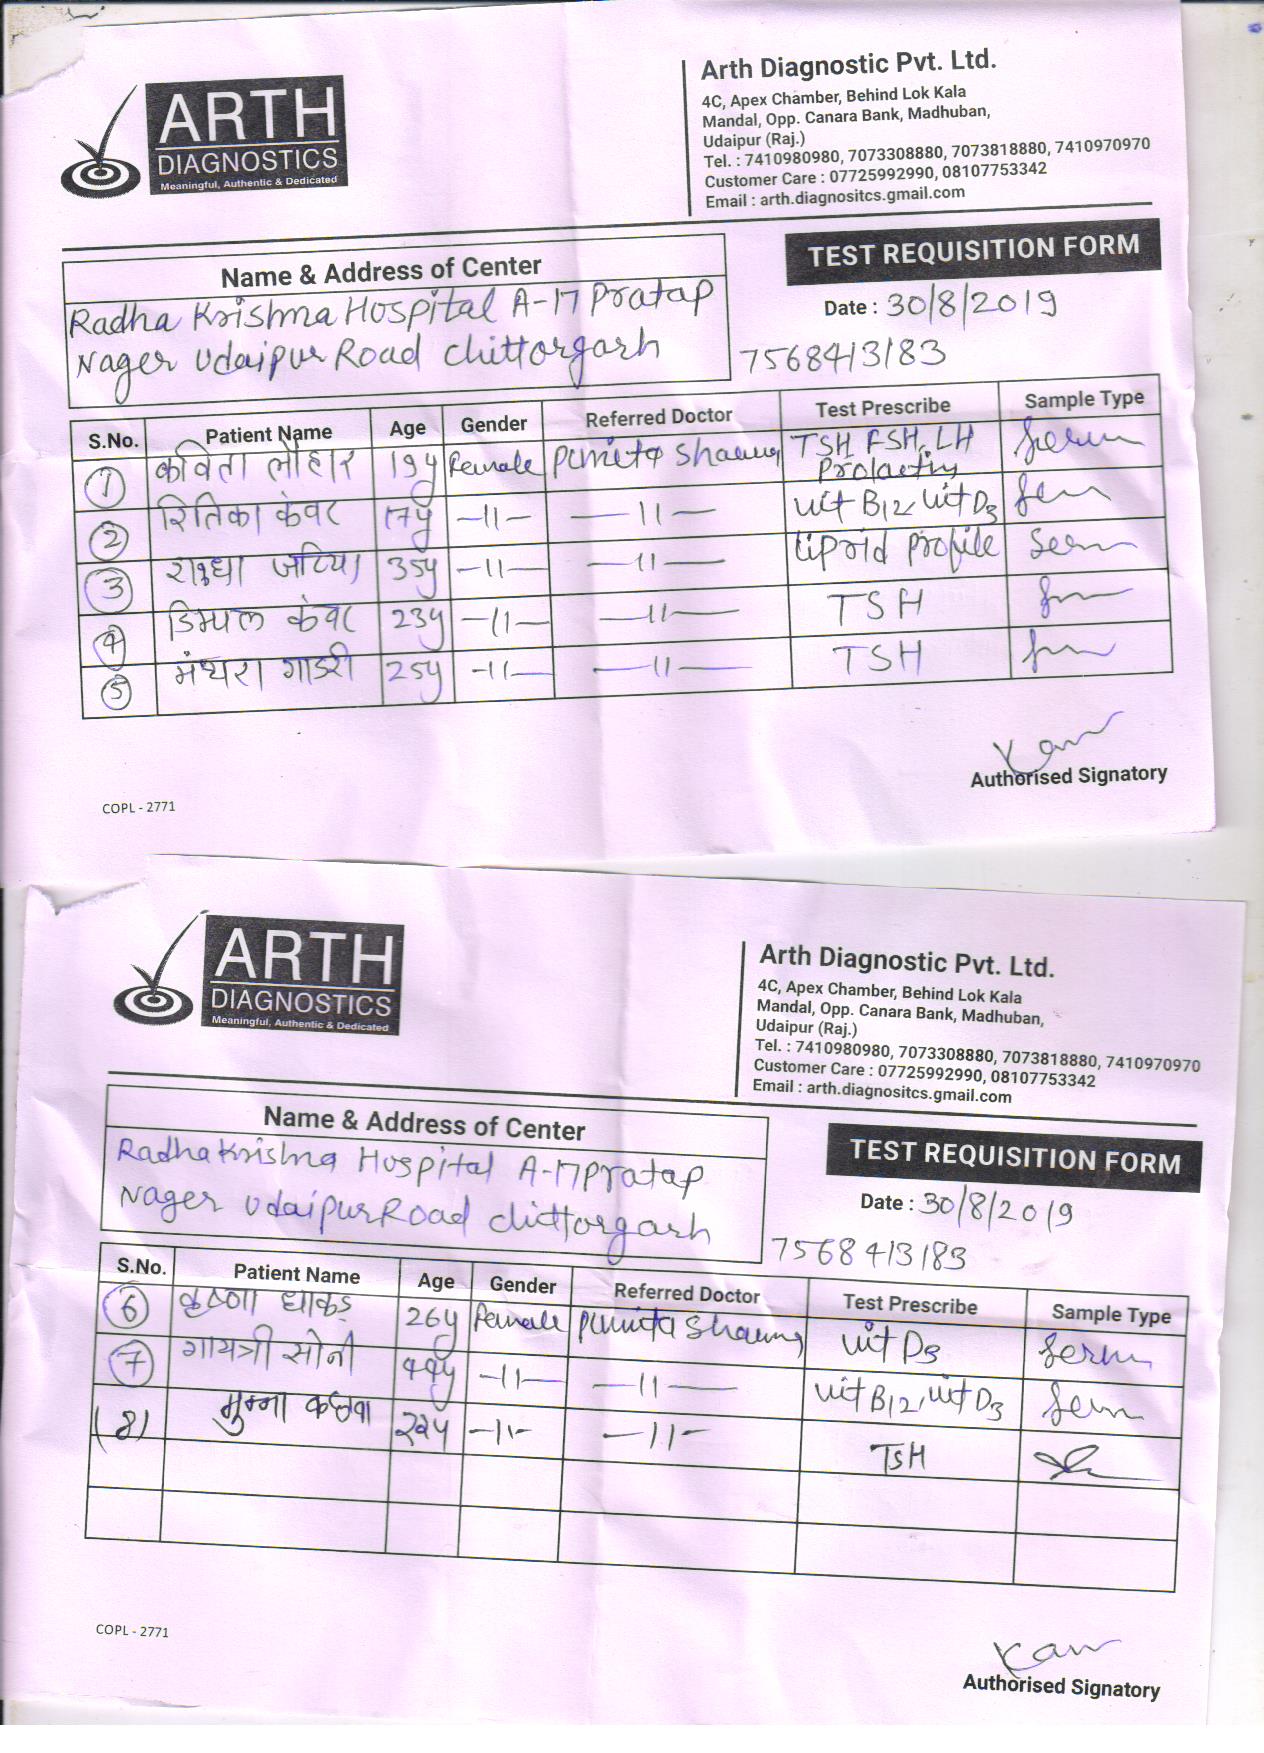 ARTH
DIAGNOSTICS
Meaningful, Authentic & Dedicated
Arth Diagnostic Pvt. Ltd.
4C, Apex Chamber, Behind Lok Kala
Mandal, Opp. Canara Bank, Madhuban,
Udaipur (Raj.)
Tel. : 7410980980, 7073308880, 7073818880, 7410970970
Customer Care : 07725992990, 08107753342
Email : arth.diagnositcs.gmail.com
Name & Address of Center
Radha Krishna Hospital A-17 Pratap
Nager Udaipur Road Chittorgarh
TEST REQUISITION FORM
Date : 30/8/2019
7568413183
S.No. Patient Name Age Gender Referred Doctor Test Prescribe Sample Type
1 कविता लौहार 19y Female Punita Sharma TSH, FSH, LH Prolactin Serum
2 रितिका कंवर 17y -11- -11- vit B12, vit D3 Serum
3 जटिया 35y -11- -11- Liprid profile Serum
4 डिम्पल कंवर 23y -11- -11- TSH
5 मंथरा गाडरी 25y -11- -11- TSH
Authorised Signatory
COPL - 2771
ARTH
DIAGNOSTICS
Meaningful, Authentic & Dedicated
Arth Diagnostic Pvt. Ltd.
4C, Apex Chamber, Behind Lok Kala
Mandal, Opp. Canara Bank, Madhuban,
Udaipur (Raj.)
Tel. : 7410980980, 7073308880, 7073818880, 7410970970
Customer Care : 07725992990, 08107753342
Email : arth.diagnositcs.gmail.com
Name & Address of Center
Radha Krishna Hospital A-17 Pratap
Nager Udaipur Road Chittorgarh
TEST REQUISITION FORM
Date : 30/8/2019
7568413183
S.No. Patient Name Age Gender Referred Doctor Test Prescribe Sample Type
6 कृष्णा धाकड़ 26y Female Punita Sharma vit D3 Serum
7 गायत्री सोनी 44y -11- -11- vit B12, vit D3 Serum
(8) -11- -11- TSH
COPL - 2771
Authorised Signatory